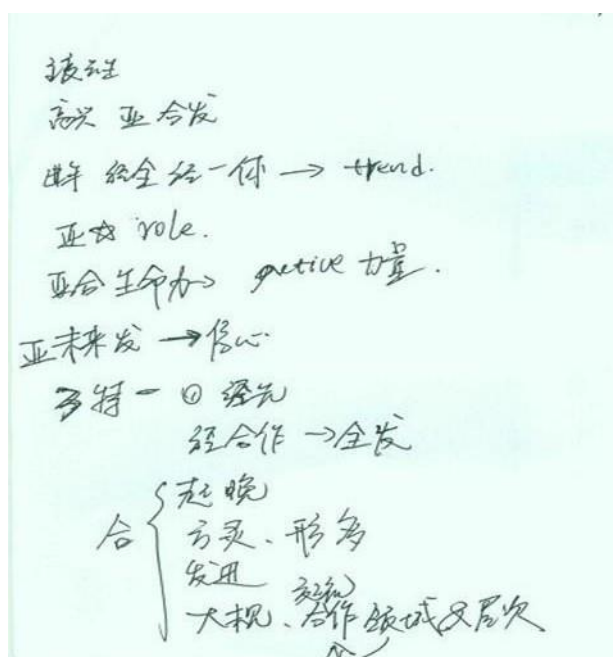 高兴 亚合发
经全 经一体 → trend.
亚 role.
亚合生命力→ active 力量.
亚未来发 → 信心
3 特 一 ① 经先
经合作 → 全发
合 { 起晚
方灵、形多
发进
大规、合作领域及层次